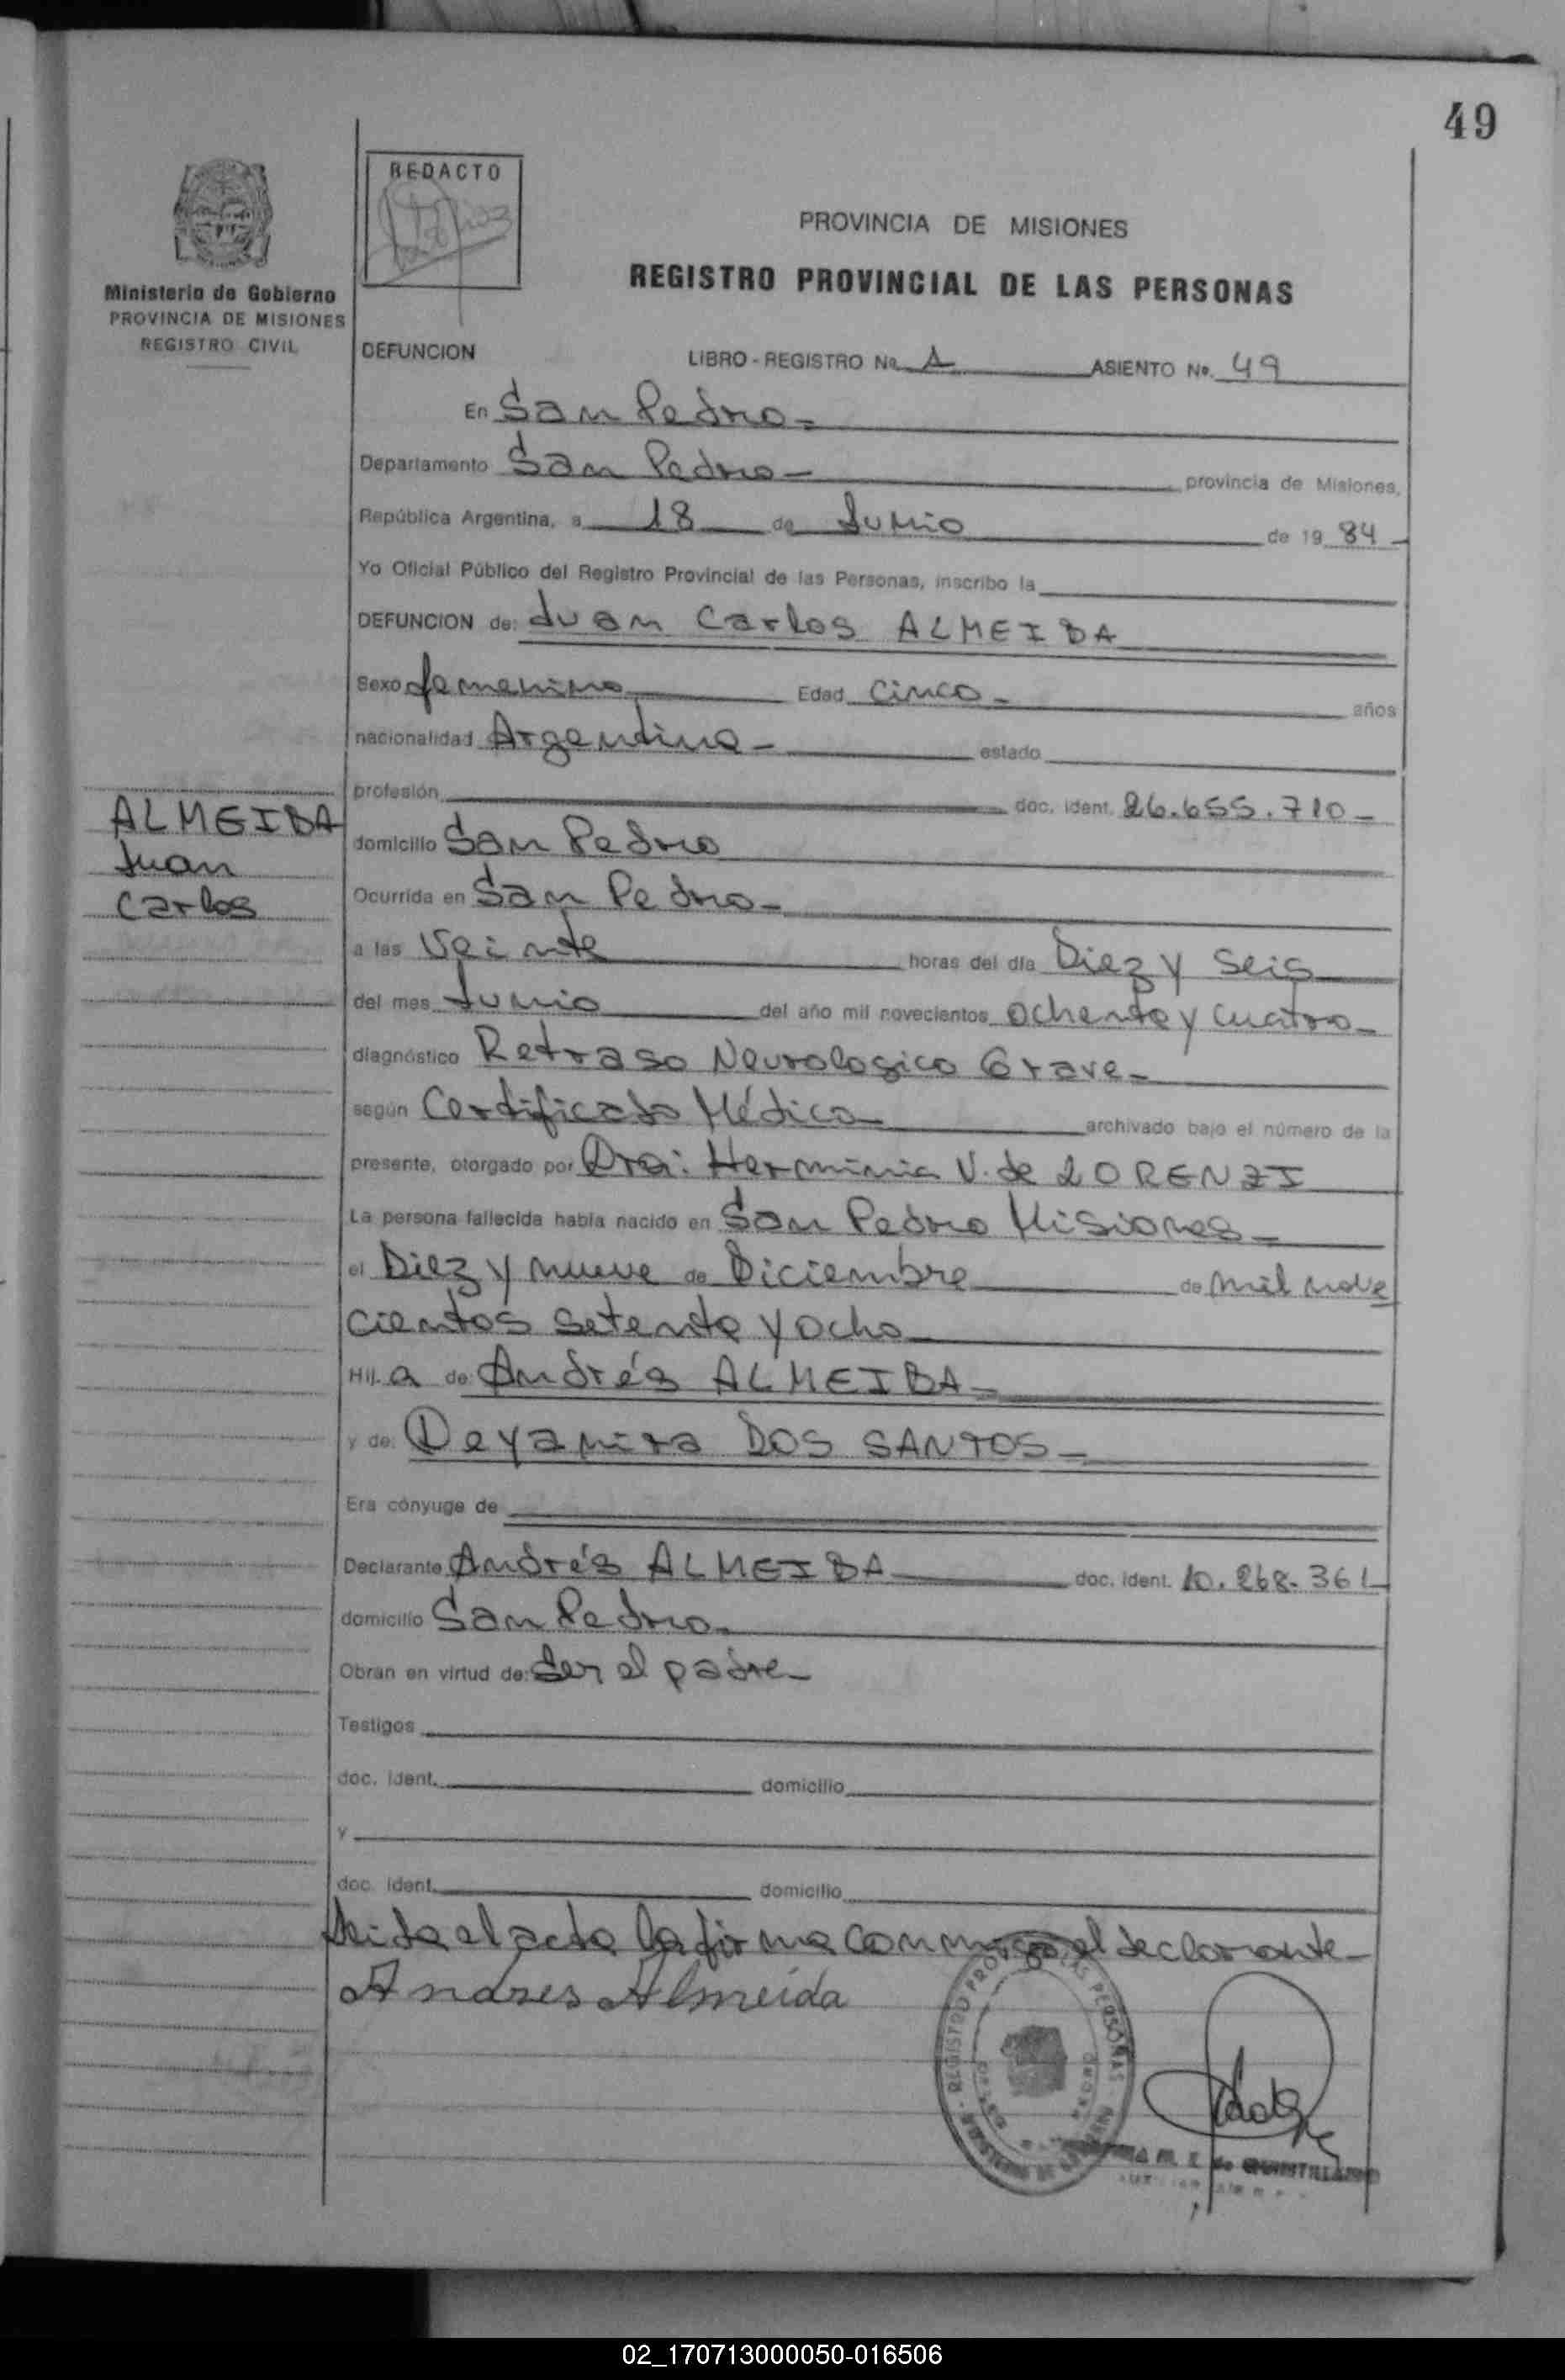 49
REDACTO
PROVINCIA DE MISIONES
REGISTRO PROVINCIAL DE LAS PERSONAS
Ministerio de Gobierno
PROVINCIA DE MISIONES
REGISTRO CIVIL
DEFUNCION LIBRO - REGISTRO No. A ASIENTO No. 49
En San Pedro -
Departamento San Pedro - provincia de Misiones,
República Argentina, a 18 de Junio de 19 84 -
Yo Oficial Público del Registro Provincial de las Personas, inscribo la
DEFUNCION de: Juan Carlos ALMEIDA
Sexo femenino Edad Cinco - años
nacionalidad Argentina - estado
profesión doc. ident. 26.655.710 -
ALMEIDA
Juan
Carlos
domicilio San Pedro
Ocurrida en San Pedro -
a las Veinte horas del día Diez y Seis
del mes Junio del año mil novecientos ochenta y cuatro -
diagnóstico Retraso Neurologico Grave -
según Certificado Médico archivado bajo el número de la
presente, otorgado por Dra: Herminia V. de LORENZI
La persona fallecida había nacido en San Pedro Misiones -
el Diez y nueve de Diciembre de mil nove
cientos setenta y ocho
Hij a de: Andrés ALMEIDA -
y de: Deyanira DOS SANTOS -
Era cónyuge de
Declarante Andrés ALMEIDA doc. ident. 10.268.361
domicilio San Pedro -
Obran en virtud de: Ser el padre -
Testigos
doc. ident. domicilio
y
doc. ident. domicilio
Leida el acta la firma conmigo el declarante -
Andres Almeida
REGISTRO PROV LAS PERSONAS
M. E. de QUINTILIANO
02_170713000050-016506